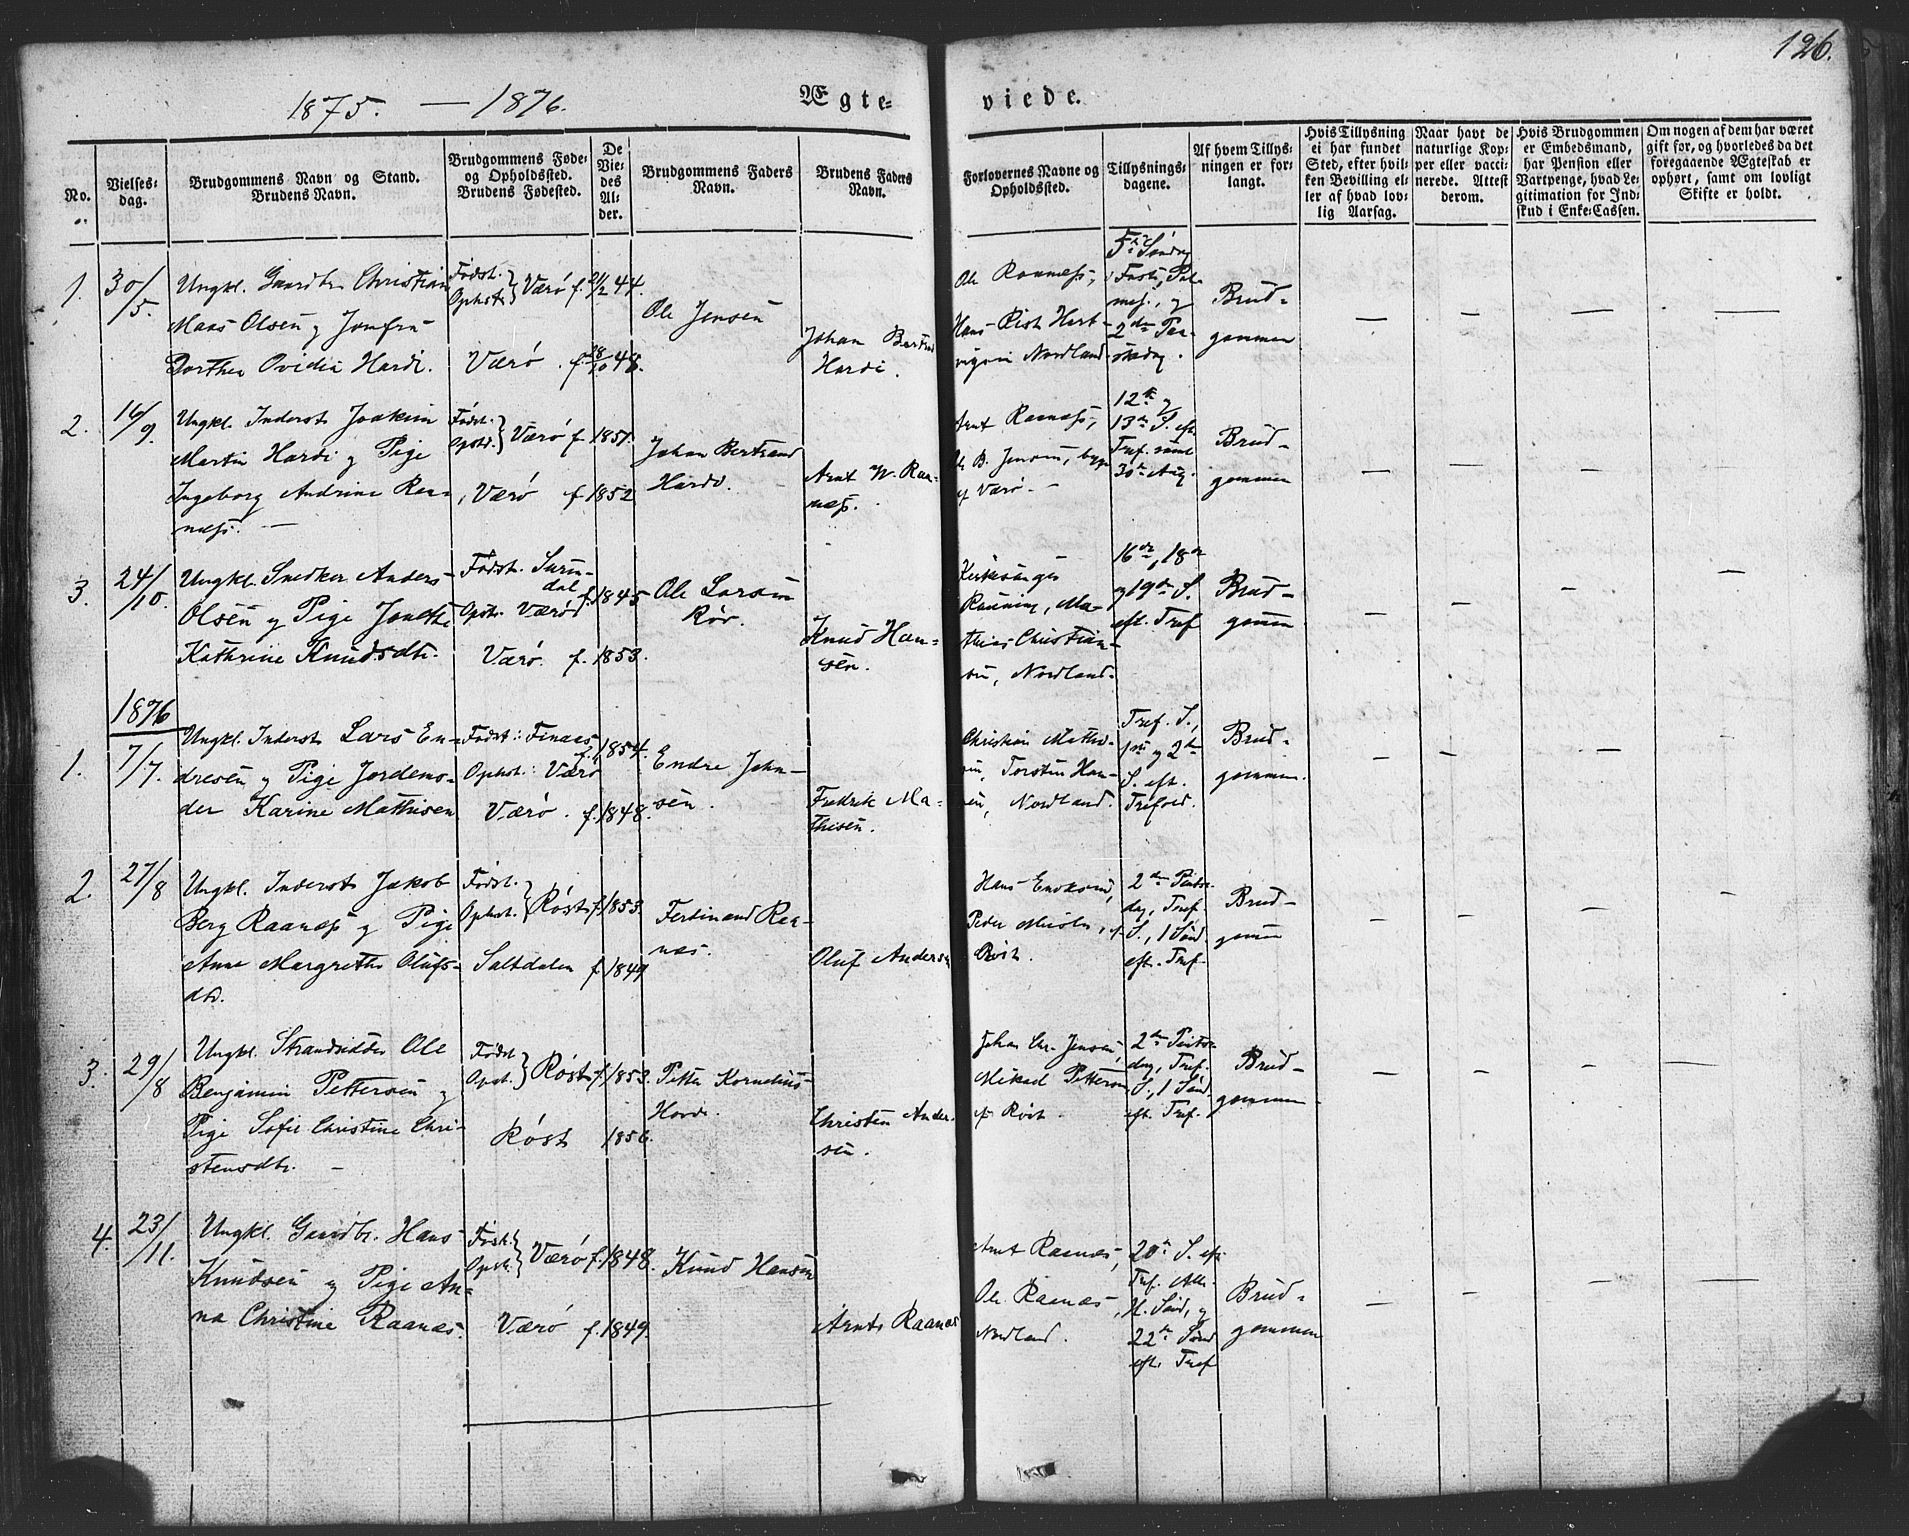 126.
1875. — 1876.
Ægteviede.
No.
Vielsesdag.
Brudgommens Navn og Stand.
Brudens Navn.
Brudgommens Føde-
og Opholdssted.
Brudens Fødested.
De
Vie-
des
Al-
der.
Brudgommens Faders
Navn.
Brudens Faders
Navn.
Forlovernes Navne og
Opholdssted.
Tillysnings-
dagene.
Af hvem Tillys-
ningen er for-
langt.
Hvis Tillysning
ei har fundet
Sted, efter hvil-
ken Bevilling el-
ler af hvad lov-
lig Aarsag.
Naar havt de
naturlige Kop-
per eller vacci-
nerede. Attest
derom.
Hvis Brudgommen
er Embedsmand,
har Pension eller
Vartpenge, hvad Le-
gitimation for Ind-
skud i Enke-Cassen.
Om nogen af dem har været
gift før, og hvorledes da det
foregaaende Ægteskab er
ophørt, samt om lovligt
Skifte er holdt.
1. 30/5.
Ungkl. Gaardbr. Christian
Maas Olsen og Jomfru
Dorthea Ovidia Hardi.
Fødst.
Ophst. } Værø f. 21/2 44.
Værø. f. 28/10 48.
Ole Jensen
Johan Bertrand
Hardi.
Ole Raanæss,
Hans Rist Hart-
vigsen Nordland
5te Søndag
i Faste, Pal-
mes., og
2den Paa-
skedag.
Brud-
gommen
— — — —
2. 16/9.
Ungkl. Inderst Joakim
Martin Hardi og Pige
Ingeborg Andrine Raa-
næss. —
Fødst.
Opst. } Værø f. 1851.
, Værø f. 1852
Johan Bertrand
Hardi.
Arnt W. Raa-
næss.
Arnt Raanæss,
Ole B. Jensen, begge
af Værø. -
12te og
13de S. eft.
Tref. samt
30te Aug.
Brud-
gommen
— — — —
3. 24/10.
Ungkl. Snedker Anders
Olsen og Pige Jonette
Kathrine Knudsdtr.
Fødst. Surn-
dal
Opst. Værø f. 1845
Værø. f. 1853.
Ole Larsen
Rør.
Knud Han-
sen.
Kirkesanger
Rønning, Ma-
thias Christian-
sen, Nordland.
16de, 18de
og 19de S.
eft. Tref
Brud-
gommen
— — — —
1876
1. 7/7.
Ungkl. Inderst Lars En-
dresen og Pige Jordemo-
der Karine Mathisen
Fødst.: Finaas
Ophst.: Værø f. 1854.
Værø. f. 1848.
Endre John-
sen.
Fredrik Ma-
thisen.
Christian Mathi-
sen, Torsten Han-
sen, Nordland.
Tref. S.,
1ste og 2den
S. eft.
Trefold.
Brud-
gommen.
— — — —
2. 27/8
Ungkl. Inderst Jakob
Berg Raanæss og Pige
Anne Margrethe Olufs-
dtr.
Fødst.
Ophst. } Røst f. 1853.
Saltdalen f. 1849
Ferdinand Raa-
næs.
Oluf Andersen
Hans Enoksen,
Peder af
Røst.
2den Pintse-
dag, Tref.
S., 1 Sønd.
eft. Tref.
Brud-
gommen
— — — —
3. 29/8
Ungkl. Strandsidder Ole
Benjamin Pettersen og
Pige Sofie Christine Chri-
stensdtr. —
Fødst.
Opst. } Røst f. 1853.
Røst 1856.
Petter Kornelius
Hardi.
Christen Ander-
sen.
Johan Chr. Jensen,
Mikael Pettersen
af Røst.
2den Pintse-
dag, Tref.
S., 1 Sønd.
eft. Tref.
Brud-
gommen
— — — —
4. 23/11.
Ungkl. Gaardbr. Hans
Knudsen og Pige An-
na Christine Raanæs.
Føst.
Opst. } Værø f. 1848.
Værø f. 1849.
Knud Hansen
Arnt Raanæs
Arnt Raanæs,
Ole Raanæs,
Nordland.
20de S. eft.
Tref. Alle-
H. Sønd, og
22de Sønd
eft. Tref
Brud-
gommen
— — — —